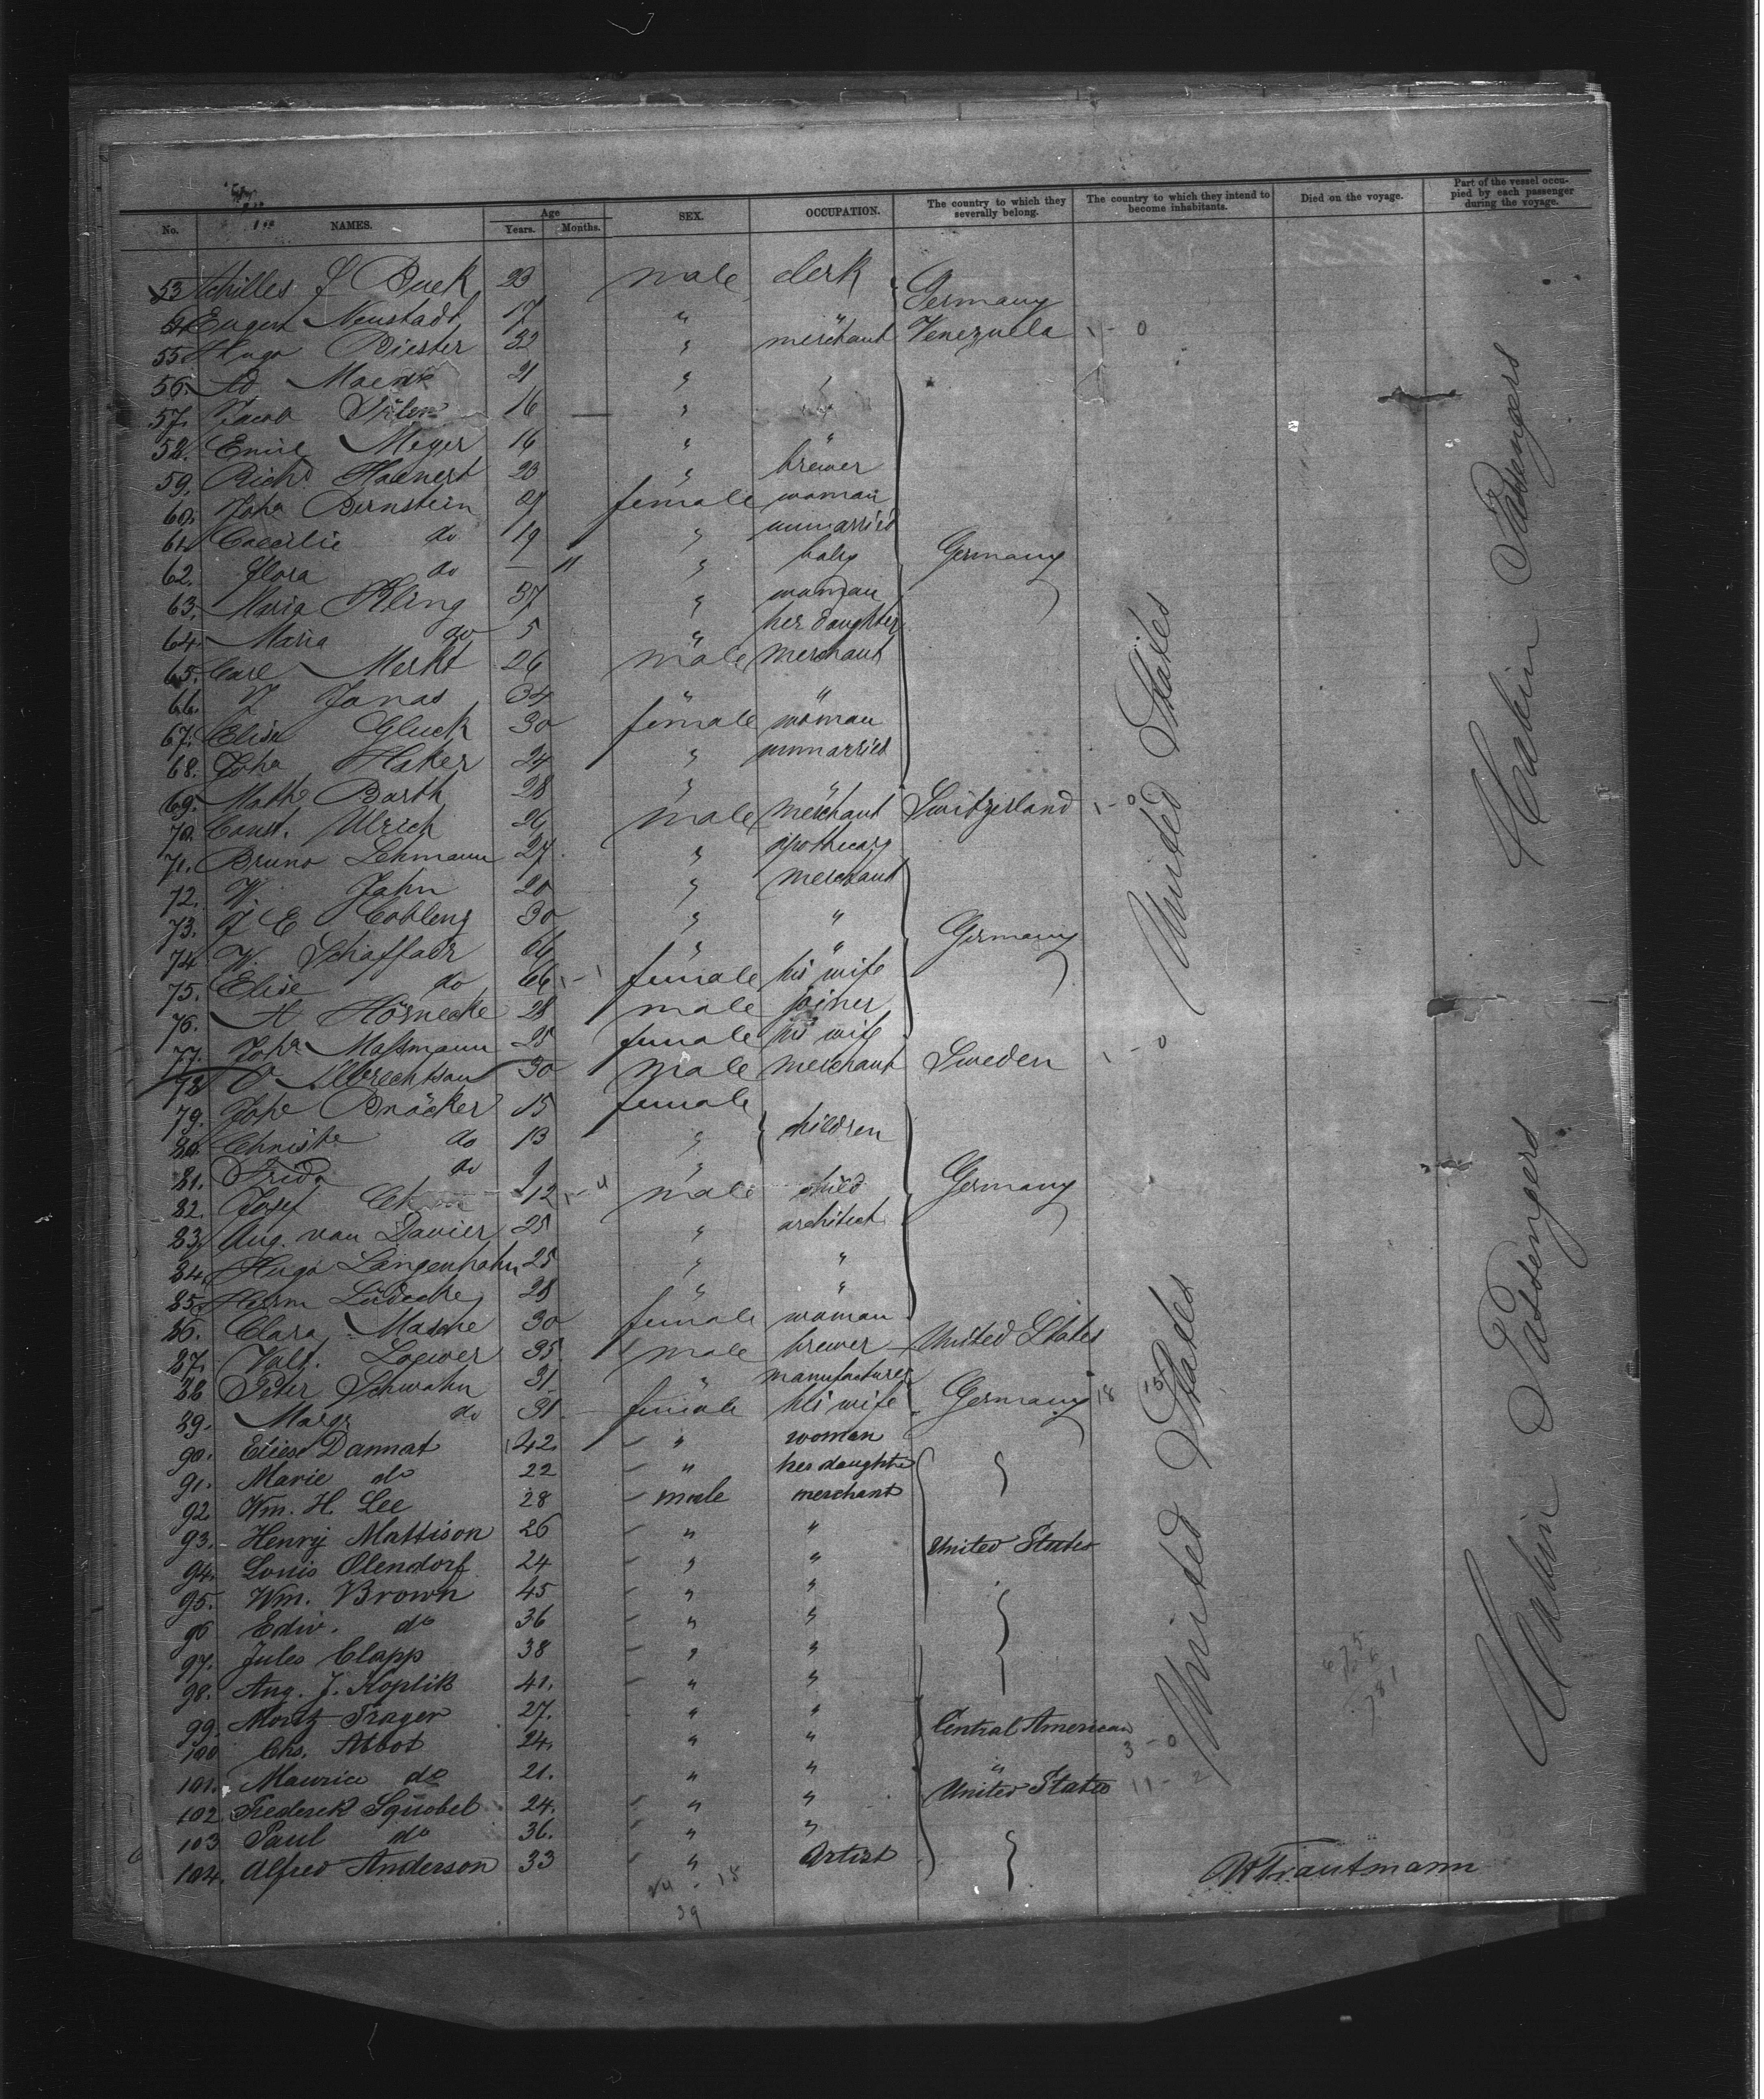 No. NAMES. Age Years. Months. SEX. OCCUPATION. The country to which they severally belong. The country to which they intend to become inhabitants. Died on the voyage. Part of the vessel occupied by each passenger during the voyage.
53 Achilles J Buek 23 male clerk Germany
54 Neustadt 17 "
55 Hugo Riester 32 " merchant Venezuela 1-0
56. Ad. 21 " "
57. Jacob 16 "
58. Emil Meyer 16 " "
59. Richd Haenert 23 " brewer
60. Joha Bernstein 27 female woman
61. Caecilie do 19 " unmarried
62. Flora do — 11 " baby Germany
63. Maria Kling 37 " woman
64. Maria do 5 " her daughter
65. Carl Merkt 26 male merchant
66. J Jonas 34 " "
67. Elise Gluck 30 female woman
68. Joha Haker 24 " unmarried
69. Mathe Barth 28 " "
70. Const. Ulrich 26 male merchant Switzerland 1-0
71. Bruno Lehmann 27 " apothecary
72. W. Jahn 20 " merchant
73. J E Cobleng 30 " "
74 W. Schaffadr 64 " " Germany
75. Elise do 66 female his wife
76. A Hörnecke 28 male joiner
77. Joha Massmann 25 female his wife
78 O Albrechtson 30 male merchant Sweden 1-0
79. Johe Bröcker 15 female
80. Christe do 13 " children
81. Frida do 9 "
82. Josef 12 male child Germany
83. Aug. von Davier 25 " architect
84. Hugo Langenhahn 25 " "
85. Herm Lüdecke 28 " "
86. Clara Masche 30 female woman
87. Valt. Loewer 35 male brewer United States
88 Peter Schwahn 31 " manufacturer
89. Margr do 31 female his wife Germany 18
90. Eliese Dannat 42 " woman
91. Marie do 22 " her daughter
92. Wm. H. Lee 28 male merchant
93. Henry Mattison 26 " "
94. Louis Olendorf 24 " " United States
95. Wm. Brown 45 " "
96 Edw. do 36 " "
97. Jules Clapp 38 " "
98. Aug. J. Koplik 41. " "
99. Moritz Trager 27. " "
100 Chs. Abbot 24. " " Central American 3-0
101. Maurice do 21. " " "
102 Frederick Squobel 24. " " United States 11-2
103 Paul do 36. " "
104. Alfred Anderson 33 " Artist
United States
United States
Cabin Passengers
Cabin Passengers
WTrautmann
39